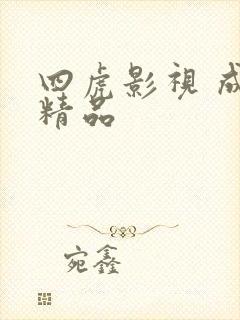 四虎影視 成
精品
宛鑫